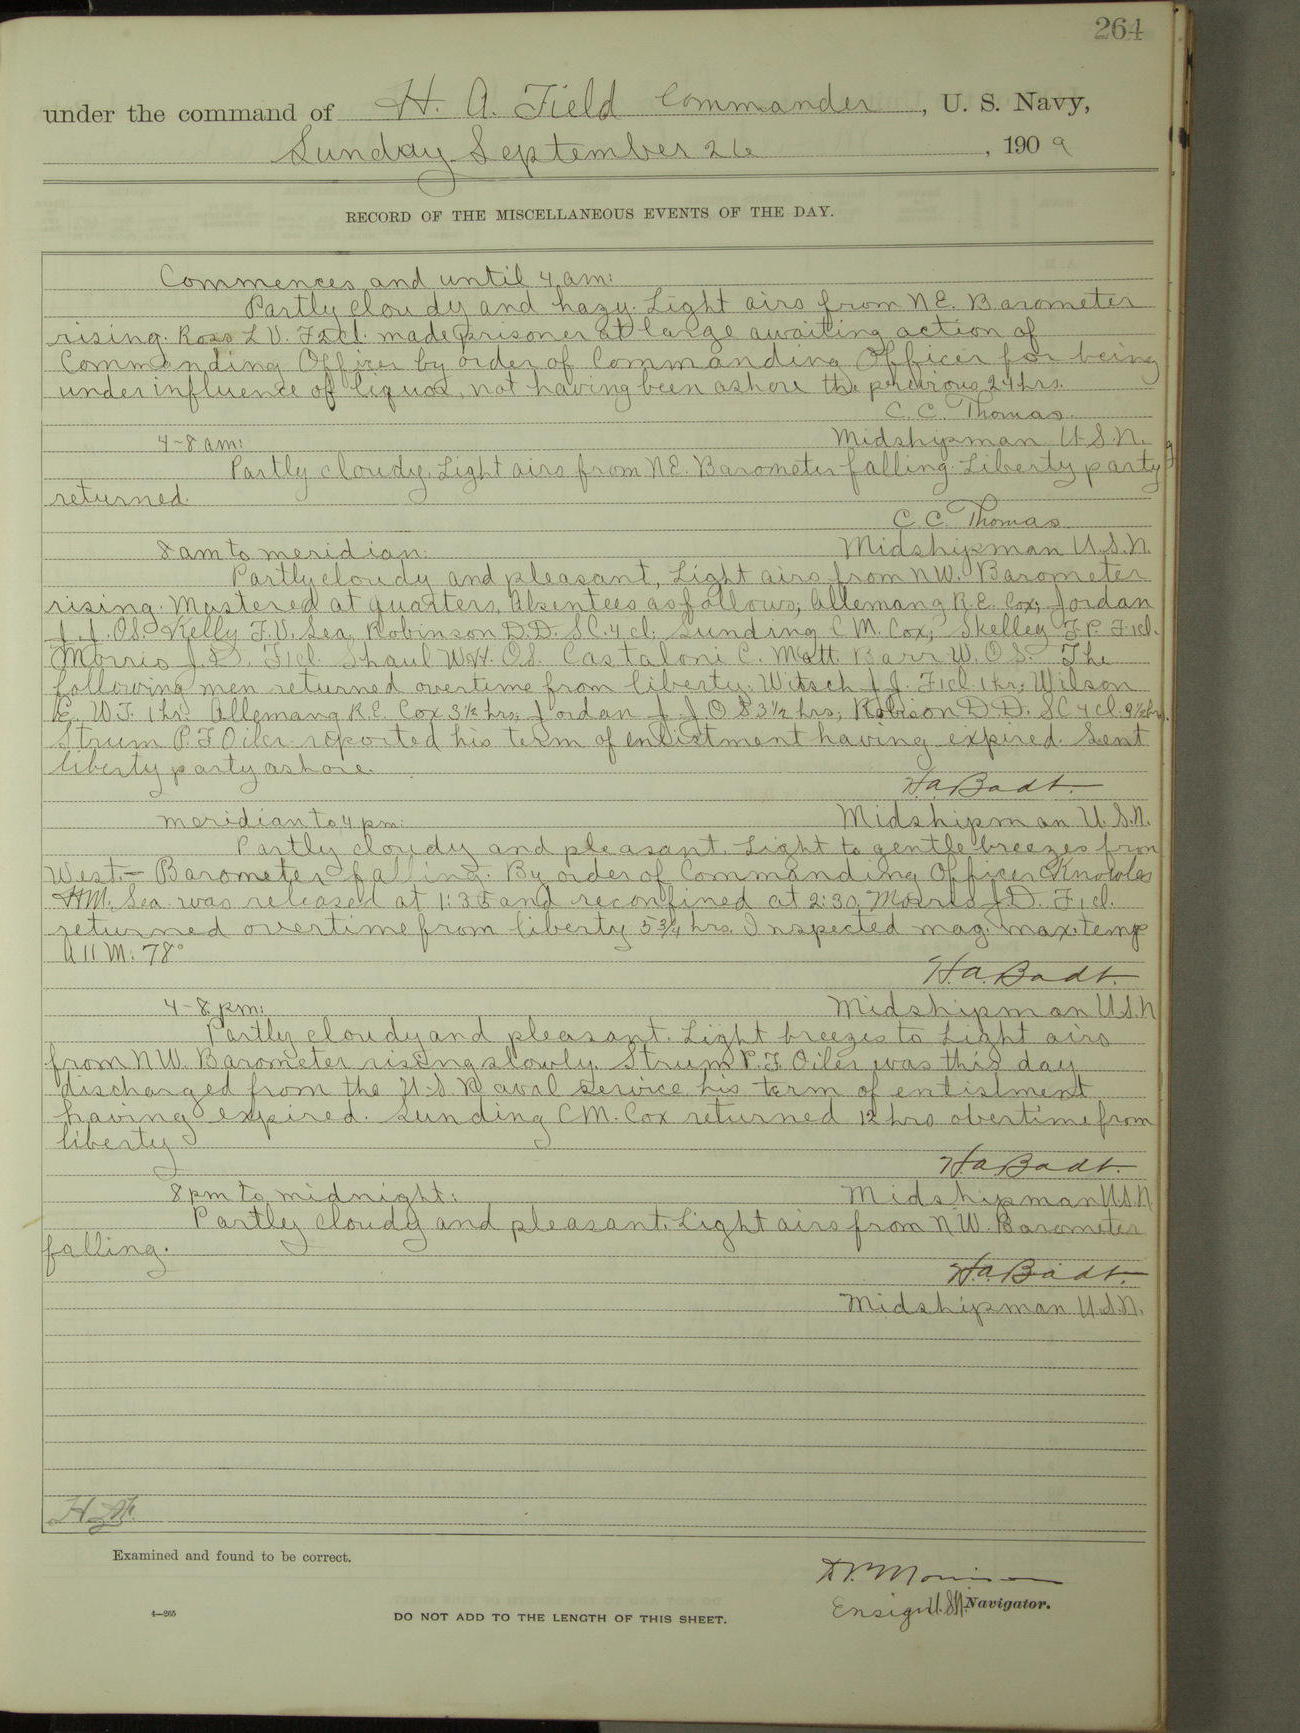 264
under the command of H. A. Field Commander, U. S. Navy,
Sunday September 26, 1909
RECORD OF THE MISCELLANEOUS EVENTS OF THE DAY.
Commences and until 4 am:
Partly cloudy and hazy. Light airs from N.E. Barometer
rising. Ross L V. F2cl. made prisoner at large awaiting action of
Commanding Officer by order of Commanding Officer for being
under influence of liquor, not having been ashore the previous 24 hrs.
C. C. Thomas
Midshipman U.S.N.
4-8 am:
Partly cloudy. Light airs from N.E. Barometer falling. Liberty party
returned.
C. C. Thomas
Midshipman U.S.N.
8 am to meridian:
Partly cloudy and pleasant, Light airs from NW. Barometer
rising. Mustered at quarters, Absentees as follows; Allemang R.E. Cox; Jordan
J. J. OS. Kelly F.V. Sea, Robinson D.D. SC. 4 cl. Sunding C M. Cox; Skelley F.P. F.1cl.
Morris J.D. F1cl. Shaul W.H. OS. Castaloni C. Matt. Barr W. O S. The
following men returned overtime from liberty. Witsch J J. F1cl. 1 hr; Wilson
E. W.T. 1 hr. Allemang R.E. Cox 3½ hrs; Jordan J. J O S 3½ hrs; Robison D.D. SC 4 cl.
Strum P. F Oiler reported his term of enlistment having expired. Sent
liberty party ashore.
H.a. Badt.
Midshipman U.S.N.
meridian to 4 pm:
Partly cloudy and pleasant. Light to gentle breezes from
West.- Barometer falling. By order of Commanding Officer Knowles
H.M. Sea was released at 1:35 and reconfined at 2:30. Morris J.D. F1cl.
returned overtime from liberty 5¾ hrs. Inspected mag. max. temp
A 11 M: 78°
H.a. Badt.
Midshipman U.S.N
4-8 pm:
Partly cloudy and pleasant. Light breezes to Light airs
from NW. Barometer rising slowly. Strum P.F. Oiler was this day
discharged from the U.S Naval service his term of entistment
having expired. Sunding C M. Cox returned 12 hrs overtime from
liberty
H.a. Badt.
Midshipman U.S.N
8 pm to midnight:
Partly cloudy and pleasant. Light airs from NW. Barometer
falling.
H.a. Badt.
Midshipman U.S.N.
Examined and found to be correct.
Ensign U.S.N. Navigator.
4—265
DO NOT ADD TO THE LENGTH OF THIS SHEET.